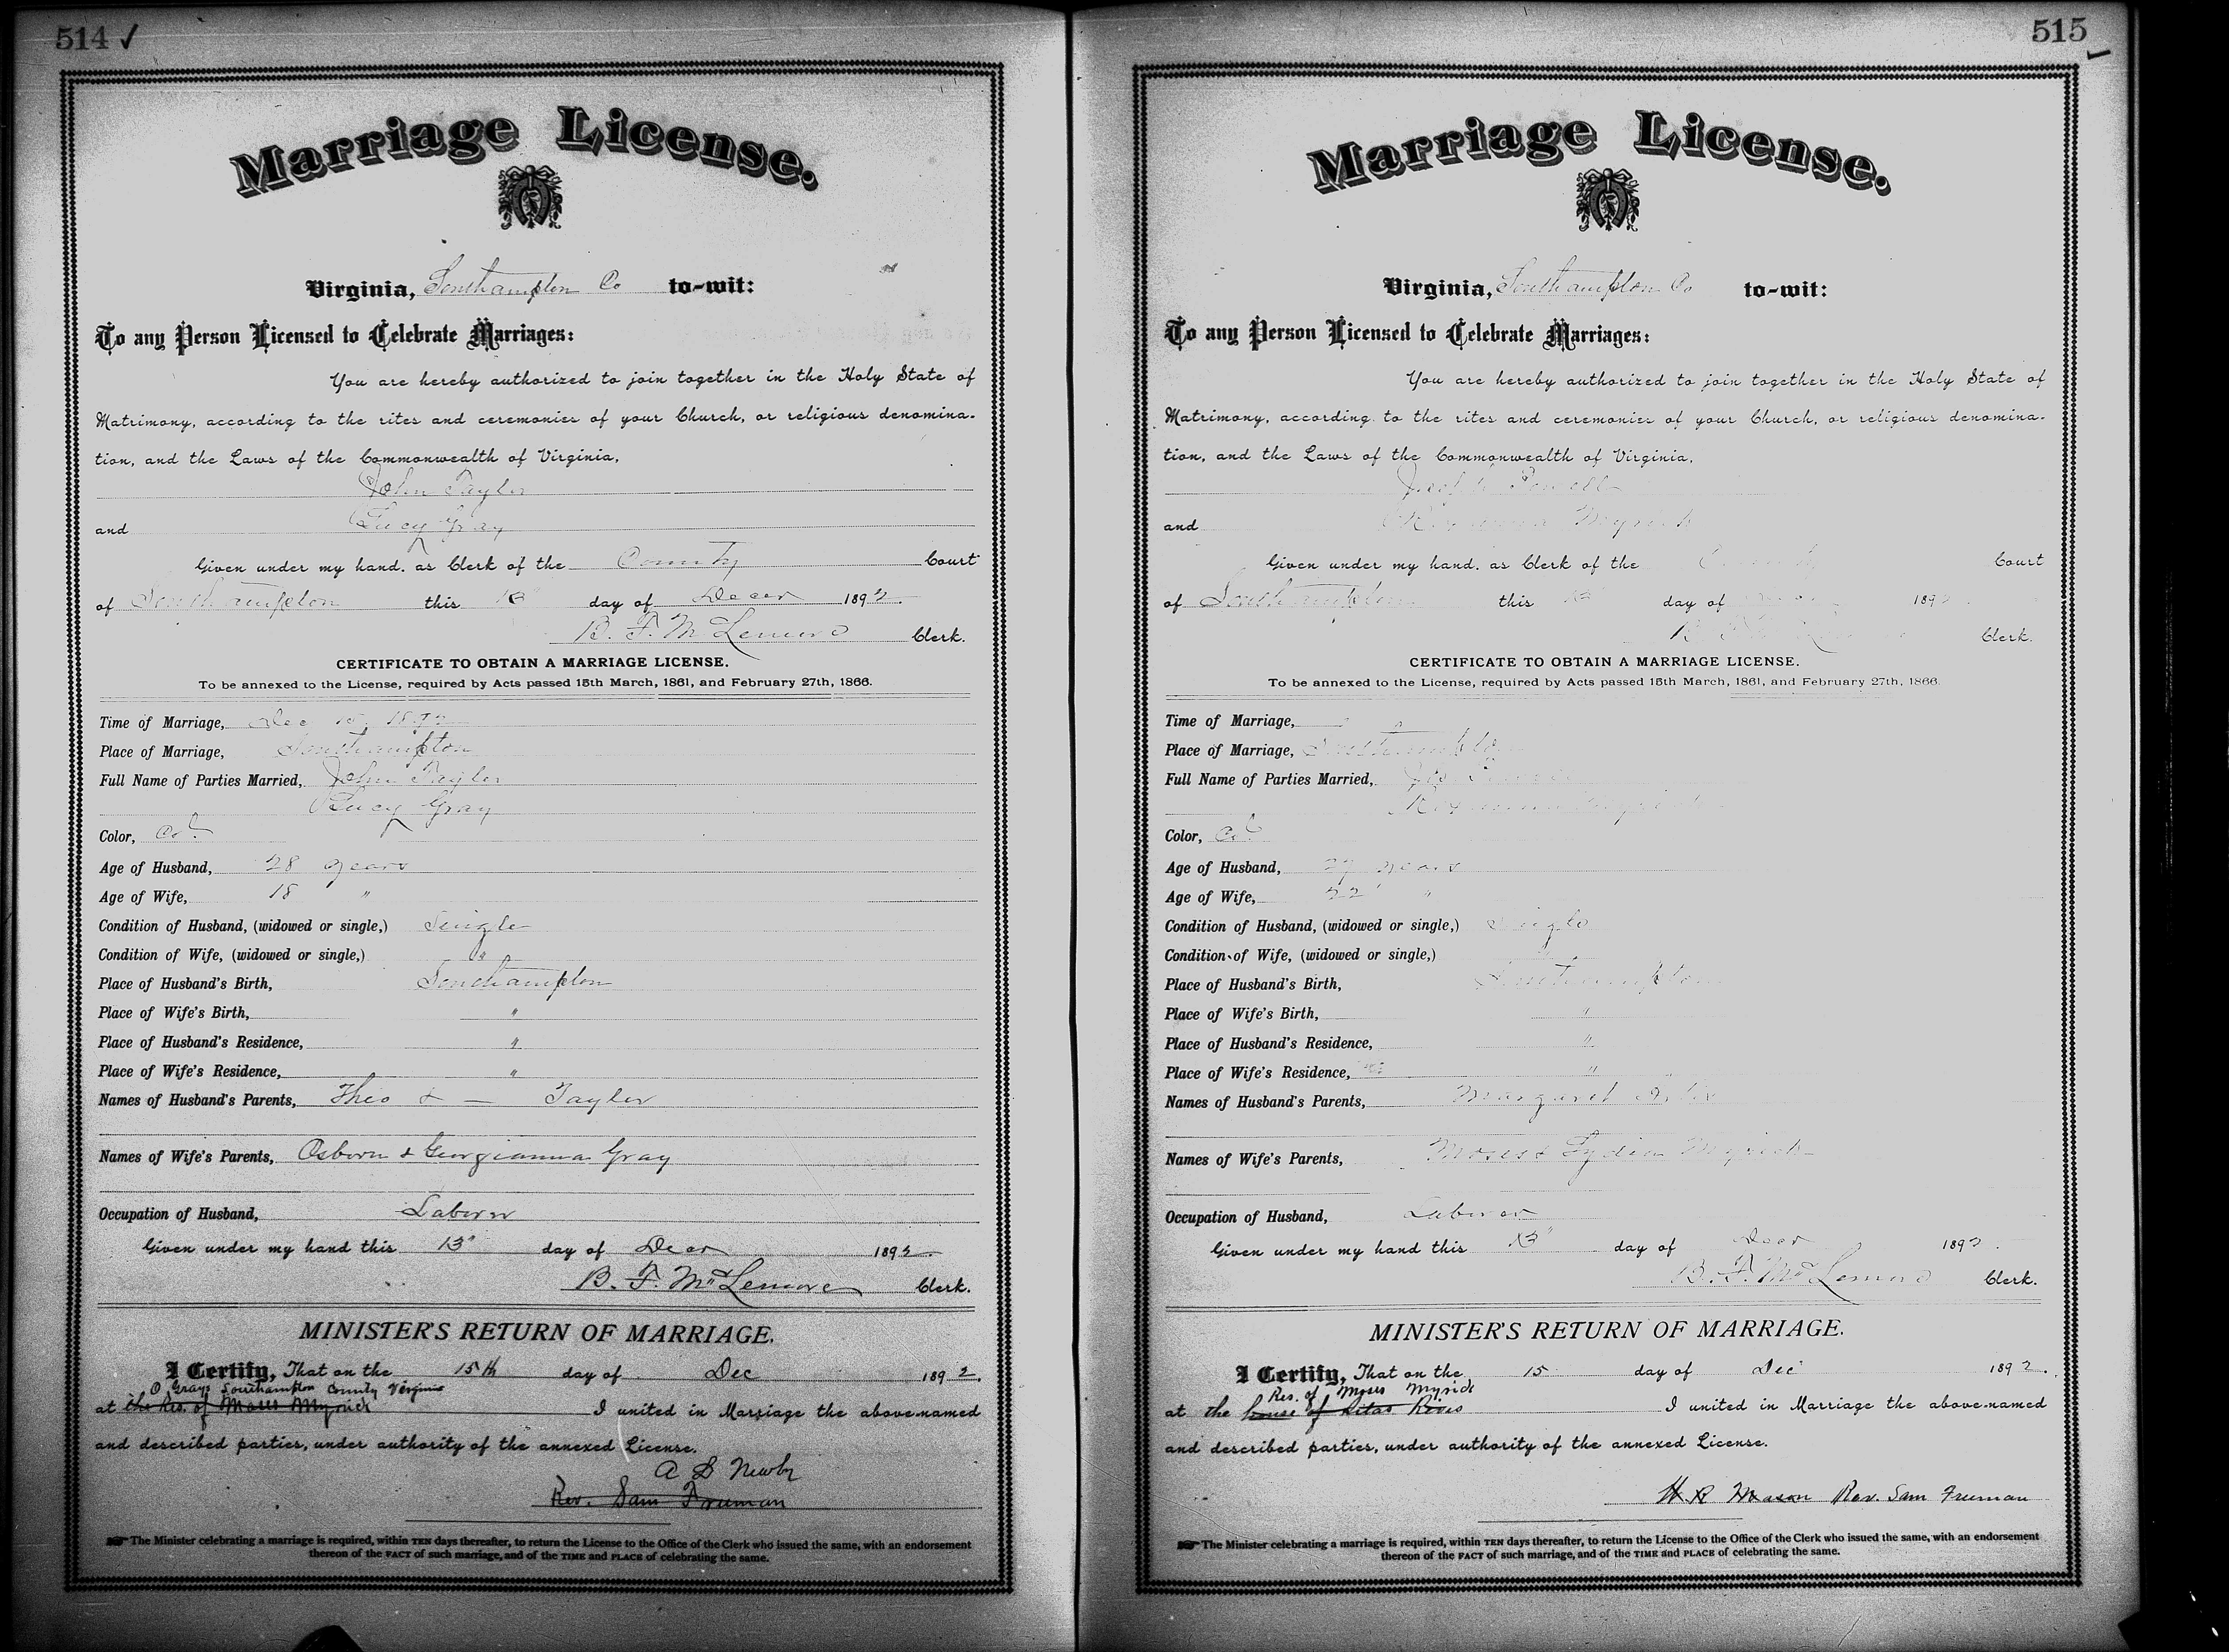 514 ✓
Marriage License.
Virginia, Southampton Co to-wit:
To any Person Licensed to Celebrate Marriages:
You are hereby authorized to join together in the Holy State of
Matrimony, according to the rites and ceremonies of your Church, or religious denomina-
tion, and the Laws of the Commonwealth of Virginia,
John Taylor
and Lucy Gray
Given under my hand, as Clerk of the County Court
of Southampton this 13" day of Decer 1892.
B. F. McLemore Clerk.
CERTIFICATE TO OBTAIN A MARRIAGE LICENSE.
To be annexed to the License, required by Acts passed 15th March, 1861, and February 27th, 1866.
Time of Marriage, Dec 15, 1892
Place of Marriage, Southampton
Full Name of Parties Married, John Taylor
Lucy Gray
Color, Cold
Age of Husband, 28 years
Age of Wife, 18 "
Condition of Husband, (widowed or single,) Single
Condition of Wife, (widowed or single,) "
Place of Husband's Birth, Southampton
Place of Wife's Birth, "
Place of Husband's Residence, "
Place of Wife's Residence, "
Names of Husband's Parents, Theo & — Taylor
Names of Wife's Parents, Osborn & Georgianna Gray
Occupation of Husband, Laborer
Given under my hand this 13" day of Decer 1892.
B. F. McLemore Clerk.
MINISTER'S RETURN OF MARRIAGE.
I Certify, That on the 15th day of Dec 1892.
O Grays Southampton County Virginia
at the Res. of Moses Myrick I united in Marriage the above-named
and described parties, under authority of the annexed License.
A B Newby
Rev. Sam Freeman
The Minister celebrating a marriage is required, within TEN days thereafter, to return the License to the Office of the Clerk who issued the same, with an endorsement
thereon of the FACT of such marriage, and of the TIME and PLACE of celebrating the same.
515
Marriage License.
Virginia, Southampton Co to-wit:
To any Person Licensed to Celebrate Marriages:
You are hereby authorized to join together in the Holy State of
Matrimony, according to the rites and ceremonies of your Church, or religious denomina-
tion, and the Laws of the Commonwealth of Virginia,
Joseph Powell
and Myrick
Given under my hand, as Clerk of the County Court
of Southampton this 13" day of 1892.
Clerk.
CERTIFICATE TO OBTAIN A MARRIAGE LICENSE.
To be annexed to the License, required by Acts passed 15th March, 1861, and February 27th, 1866.
Time of Marriage,
Place of Marriage, Southampton
Full Name of Parties Married, Jos
Color, Cold
Age of Husband, years
Age of Wife, 22 "
Condition of Husband, (widowed or single,) Single
Condition of Wife, (widowed or single,)
Place of Husband's Birth, Southampton
Place of Wife's Birth, "
Place of Husband's Residence, "
Place of Wife's Residence, "
Names of Husband's Parents, Margaret
Names of Wife's Parents, Moses & Lydia Myrick
Occupation of Husband, Laborer
Given under my hand this 13" day of Decer 1892.
B. F. McLemore Clerk.
MINISTER'S RETURN OF MARRIAGE.
I Certify, That on the 15 day of Dec 1892.
Res. of Moses Myrick
at the house of I united in Marriage the above-named
and described parties, under authority of the annexed License.
H R Mason Rev. Sam Freeman
The Minister celebrating a marriage is required, within TEN days thereafter, to return the License to the Office of the Clerk who issued the same, with an endorsement
thereon of the FACT of such marriage, and of the TIME and PLACE of celebrating the same.